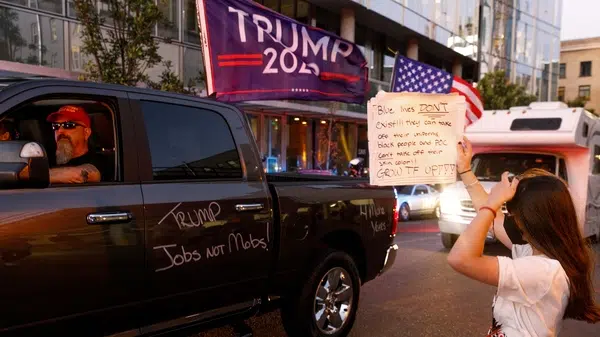 TRUMP
202
"Blue lives DON'T
exist!! They can take
off their uniform,
black people and POC
can't take off their
skin color!!
GROW TF UP!!!"
TRUMP
Jobs Not Mobs!
4 More
Years